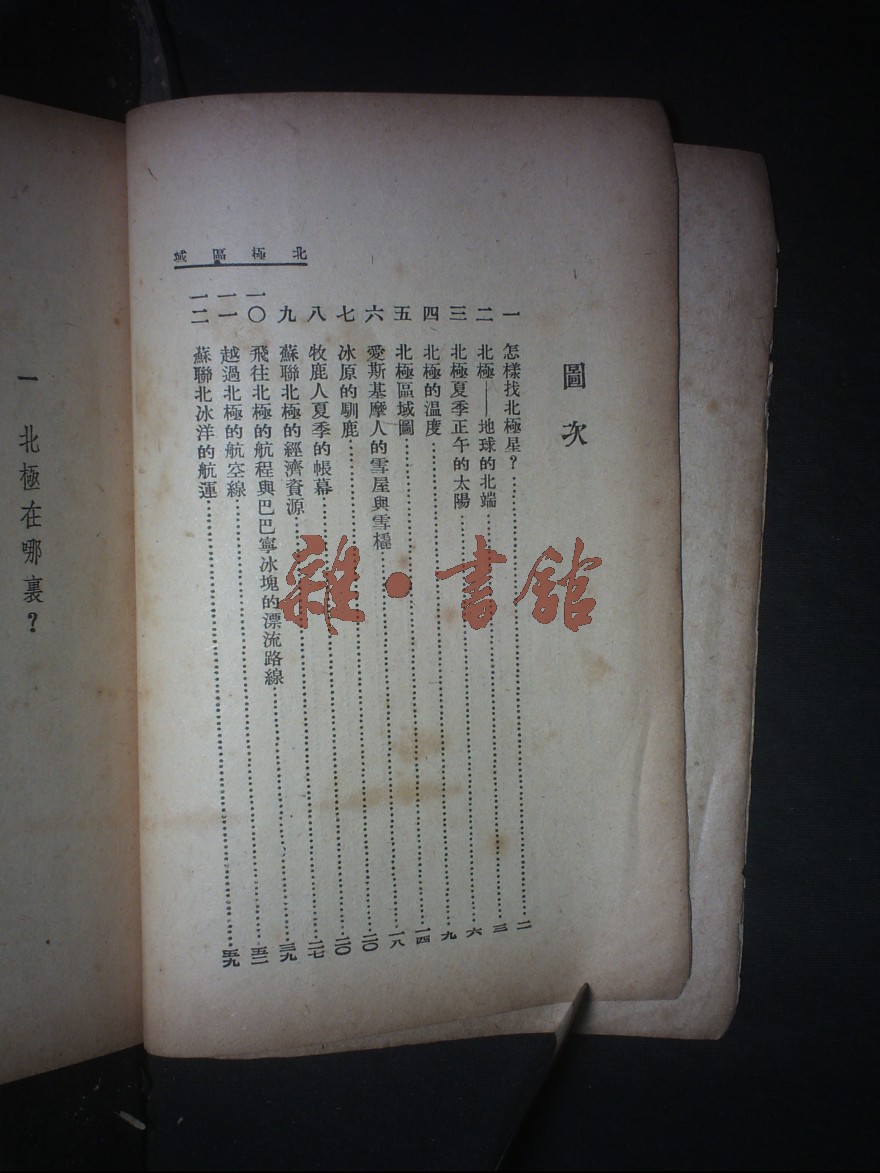 北極區域
圖次
一 怎樣找北極星？……二
二 北極——地球的北端……三
三 北極夏季正午的太陽……六
四 北極的溫度……九
五 北極區域圖……一四
六 愛斯基摩人的雪屋與雪橇……一八
七 冰原的馴鹿……二〇
八 牧鹿人夏季的帳幕……二〇
九 蘇聯北極的經濟資源……二七
一〇 飛往北極的航程與巴巴寧冰塊的漂流路線……三九
一一 越過北極的航空線……五二
一二 蘇聯北冰洋的航運……五九
一 北極在哪裏？
雜·書館